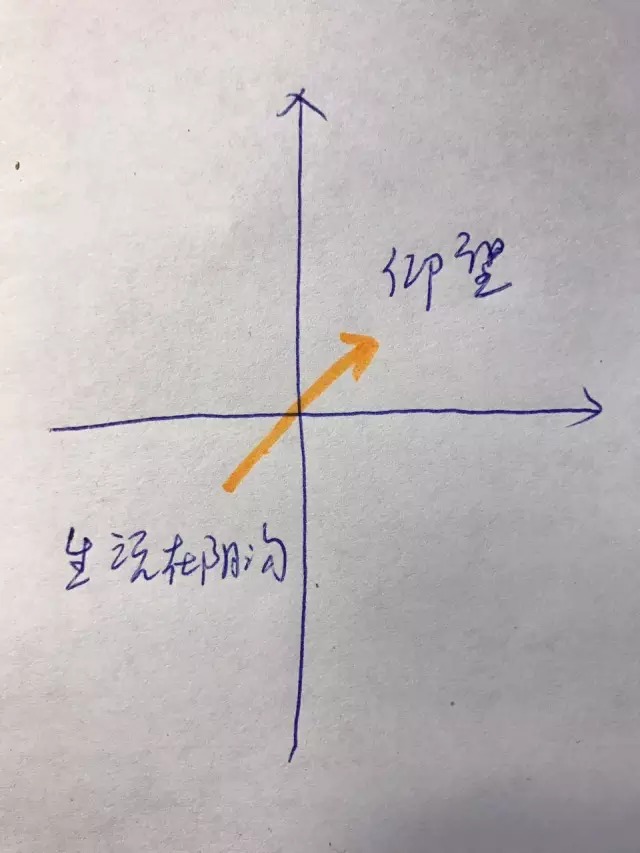 仰望
生活在阴沟